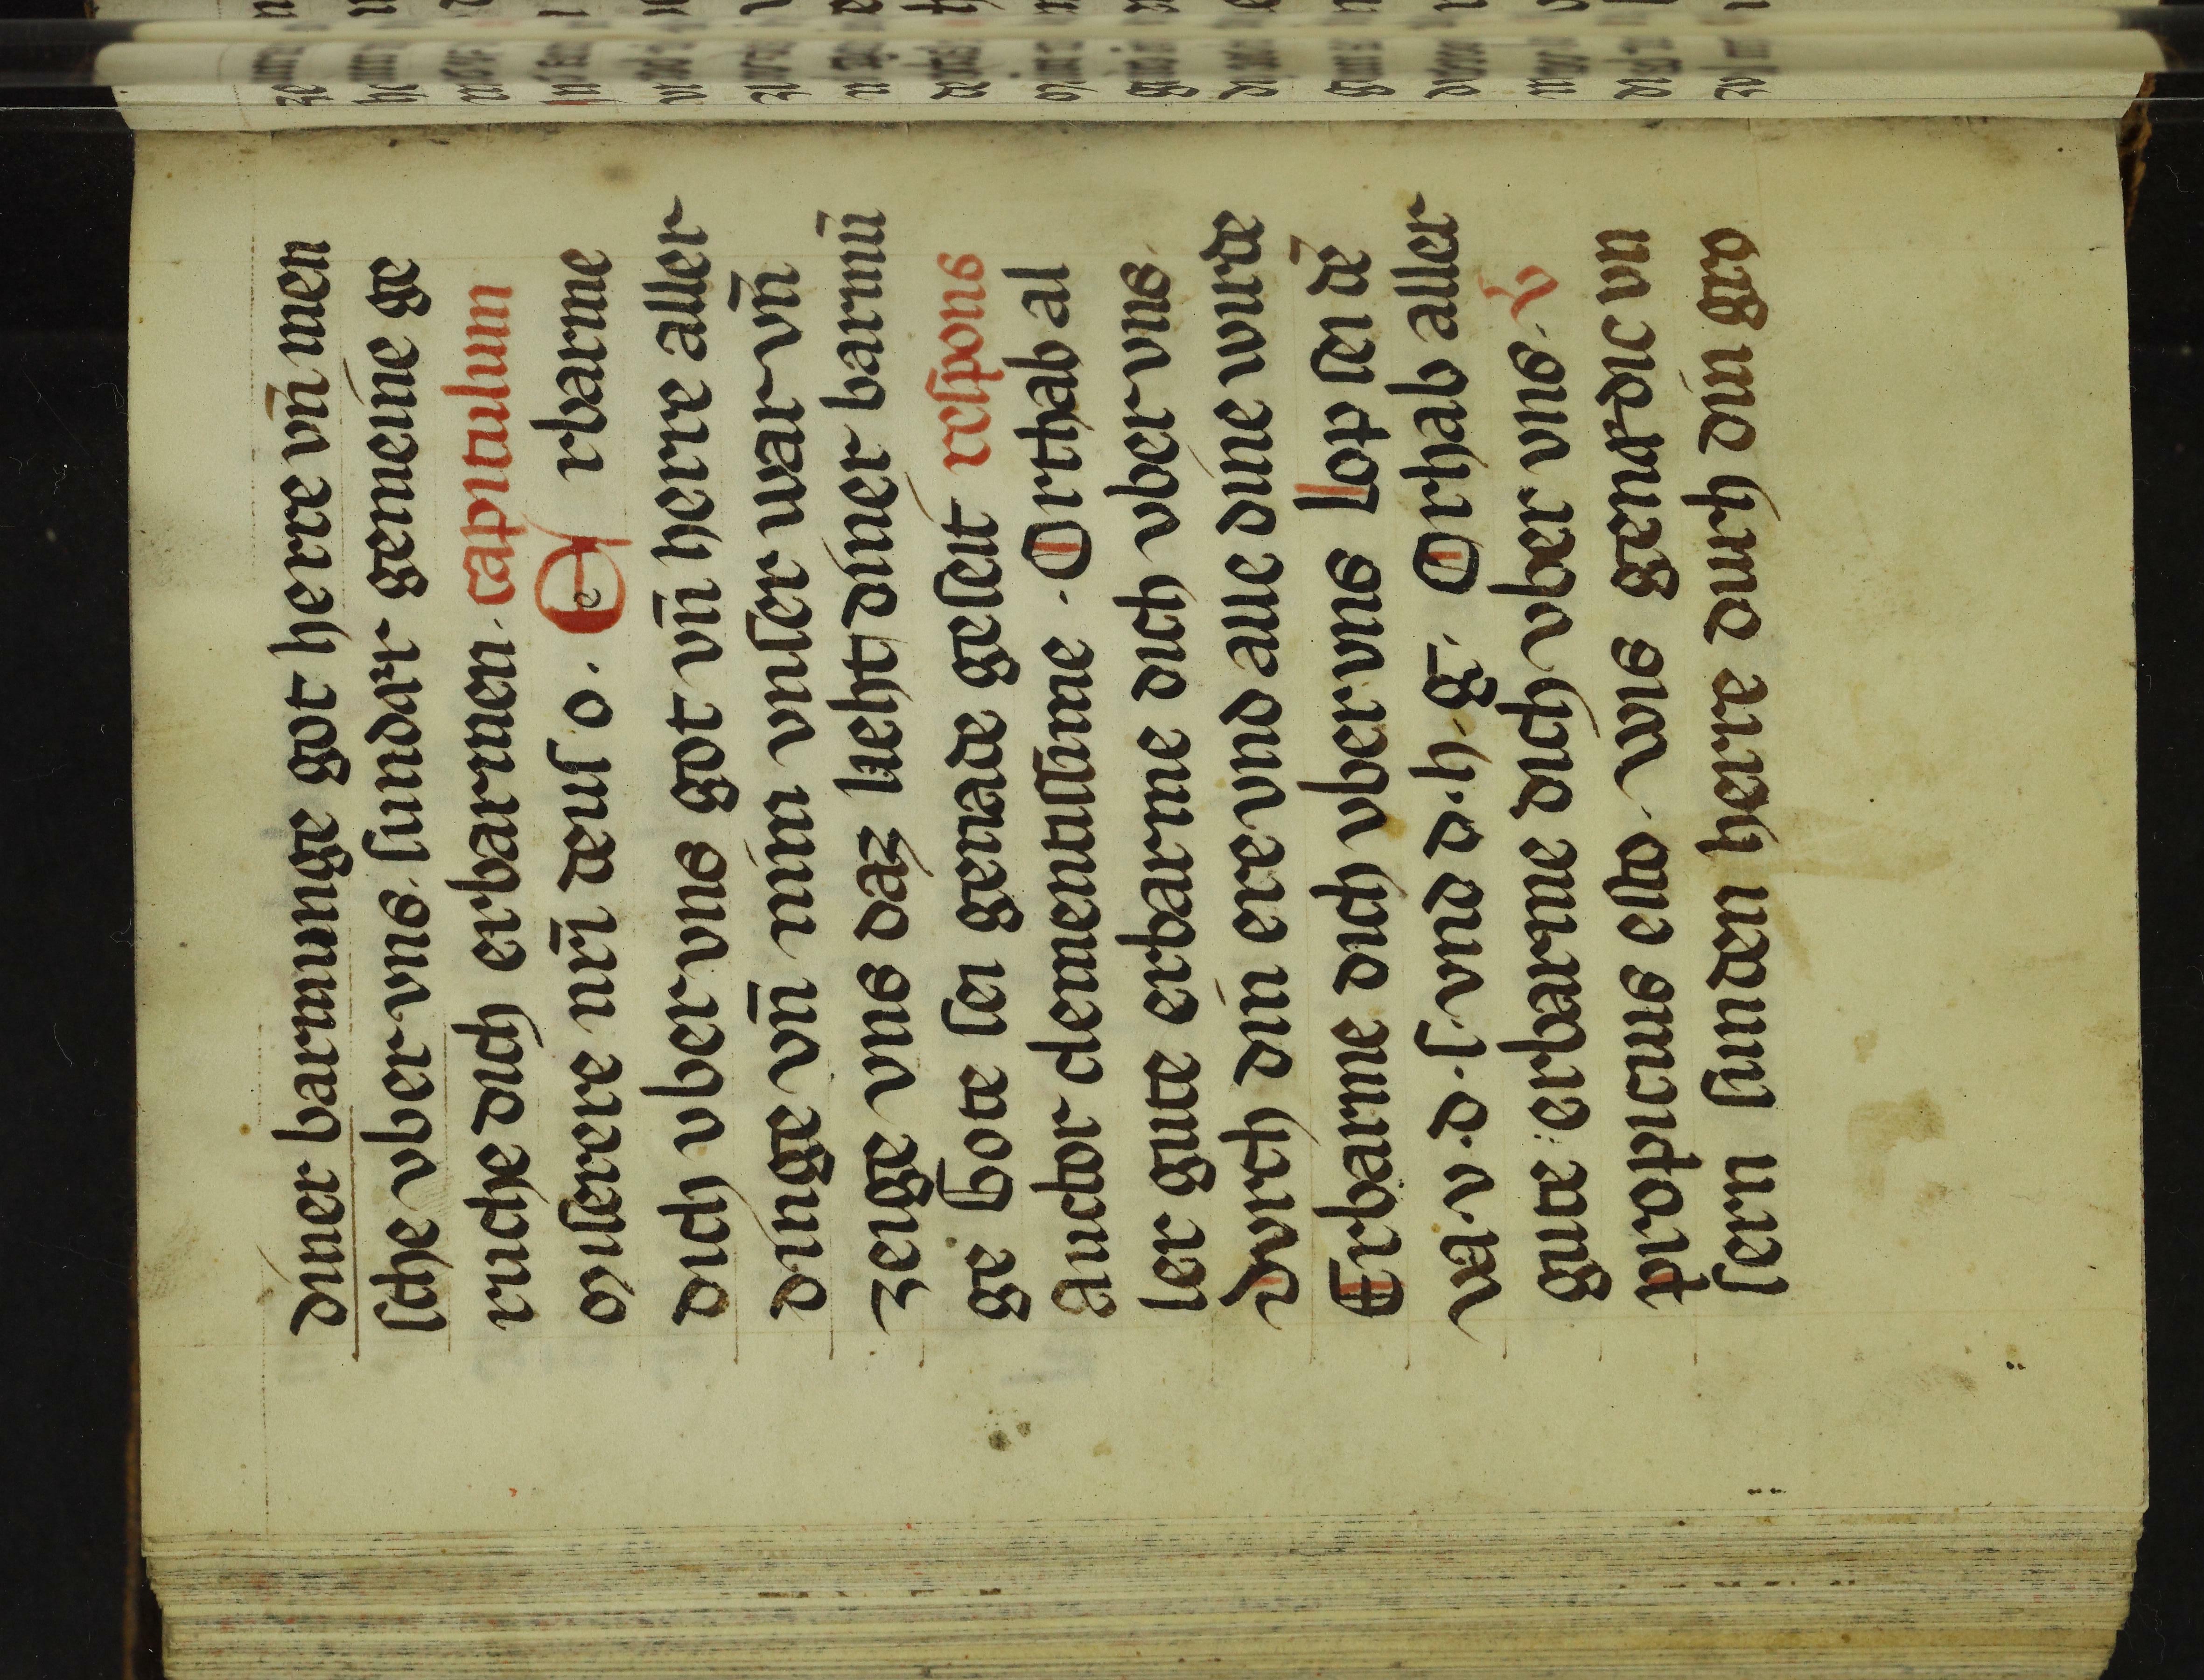 diner barmunge got herre vn̄ men
ſche vber vns. ſundarr gemeine ge
ruche dich erbarmen. capitulum
Miſerere nr̄i deuſ o. Erbarme
dich vber vns got vn̄ herre aller
dinge vn̄ nim vnſer war vn̄
zeige vns daz lieht diner barmū
ge Gote ſei genade geſeit reſpons
Auctor clementiſſime. Orthab al
ler gute erbarme dich vber vns.
Durch din ere vnd alle dine wirde
Erbarme dich vber vns Lop ſei dē
va. v. d. ſ. vnd d. h. gͣ. Orhab aller
gute erbarme dich vber vns. v̄
Propicius eſto. wis genædic vn
ſern ſunden herre durch din gro